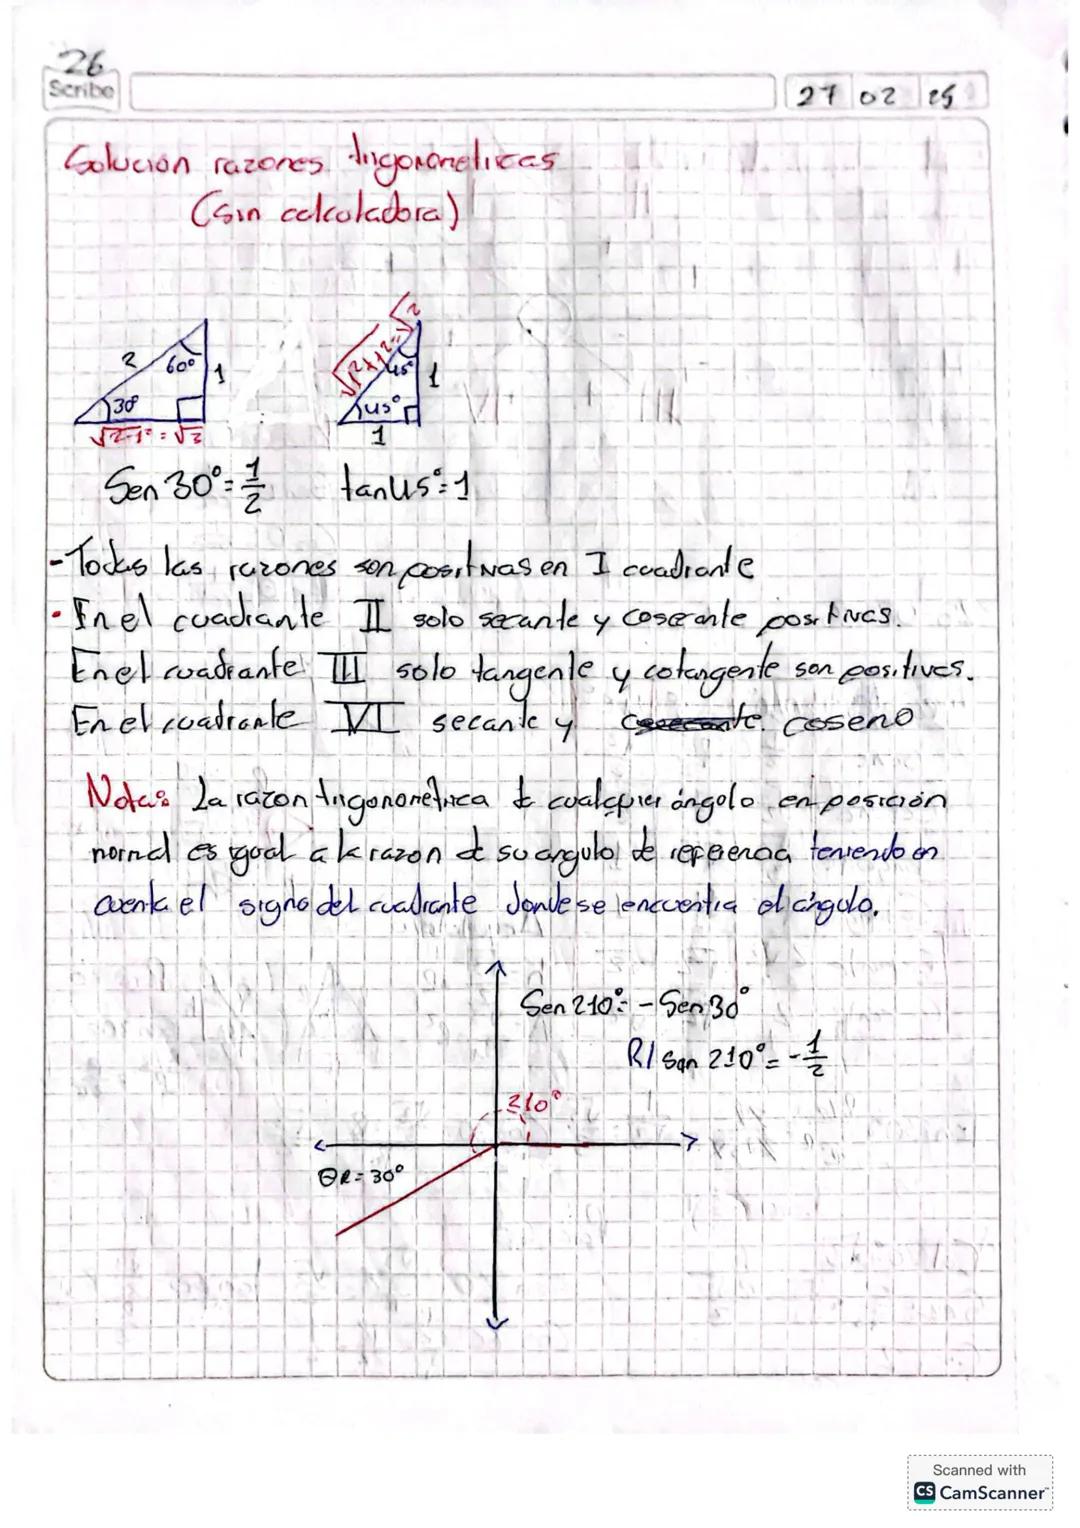 26
Scribe
27 02 25
Solución razones trigonometricas
(sin calculadora)
2 60° 1
30°
√2²-1² = √3
√1²+1² = √2
45° 1
45°
1
Sen 30° = 1/2 tan 45° = 1
- Todas las razones son positivas en I cuadrante
· En el cuadrante II solo secante y cosecante positivas.
En el cuadrante III solo tangente y cotangente son positivas.
En el cuadrante VI secante y coseno
Nota: La razon trigonométrica de cualquier ángulo en posición
normal es igual a la razon de su angulo de referencia teniendo en
cuenta el signo del cuadrante donde se encuentra el ángulo.
Sen 210° = - Sen 30°
R/ Sen 210° = - 1/2
210°
θR = 30°
Scanned with
CS CamScanner